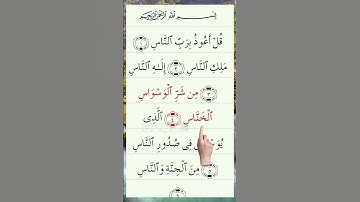 بِسْمِ اللَّهِ الرَّحْمَٰنِ الرَّحِيمِ
قُلْ أَعُوذُ بِرَبِّ ٱلنَّاسِ ۝١
مَلِكِ ٱلنَّاسِ ۝٢ إِلَـٰهِ ٱلنَّاسِ
۝٣ مِن شَرِّ ٱلْوَسْوَاسِ
ٱلْخَنَّاسِ ۝٤ ٱلَّذِى
فِى صُدُورِ ٱلنَّاسِ
۝٥ مِنَ ٱلْجِنَّةِ وَٱلنَّاسِ